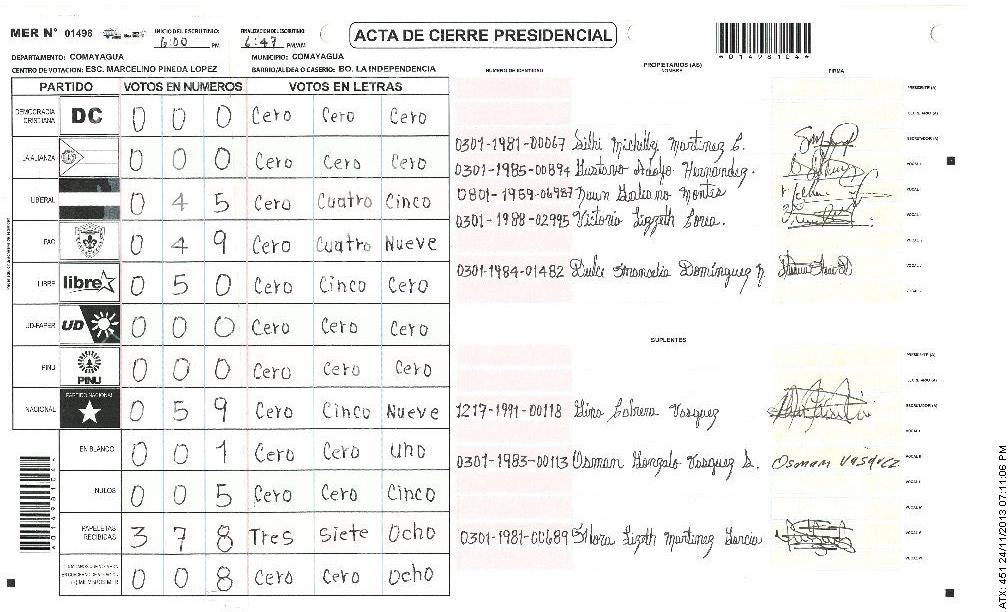 MER N° 01498
INICIO DEL ESCRUTINIO 6:00 PM
FINALIZACION DEL ESCRUTINIO 6:47 PM/AM
ACTA DE CIERRE PRESIDENCIAL
*01498104*
DEPARTAMENTO: COMAYAGUA MUNICIPIO: COMAYAGUA
CENTRO DE VOTACION: ESC. MARCELINO PINEDA LOPEZ BARRIO/ALDEA O CASERIO: BO. LA INDEPENDENCIA
NUMERO DE IDENTIDAD PROPIETARIOS (AS) NOMBRE FIRMA
PARTIDO VOTOS EN NUMEROS VOTOS EN LETRAS
DEMOCRACIA CRISTIANA DC 0 0 0 Cero Cero Cero
LA ALIANZA 0 0 0 Cero Cero Cero
LIBERAL 0 4 5 Cero Cuatro Cinco
PAC 0 4 9 Cero Cuatro Nueve
LIBRE libre 0 5 0 Cero Cinco Cero
UD-FAPER UD 0 0 0 Cero Cero Cero
PINU PINU 0 0 0 Cero Cero Cero
NACIONAL PARTIDO NACIONAL 0 5 9 Cero Cinco Nueve
EN BLANCO 0 0 1 Cero Cero Uno
NULOS 0 0 5 Cero Cero Cinco
PAPELETAS RECIBIDAS 3 7 8 Tres Siete Ocho
0 0 8 Cero Cero Ocho
PRESIDENTE (A)
SECRETARIO (A)
0301-1981-00067 Michelly Martinez C. ESCRUTADOR (A)
0301-1985-00894 Gustavo Adolfo Hernandez. VOCAL I
0801-1959-06987 Galeano Montes
0301-1988-02995 Victoria Lizzeth
0301-1984-01482 Dulce Francelia Dominguez
SUPLENTES
PRESIDENTE (A)
SECRETARIO (A)
1217-1991-00118 Gina Cabrera Vasquez ESCRUTADOR (A)
0301-1983-00113 Osman Gonzalo Vasquez Osman Vasquez
0301-1981-00689 Lizeth Martinez Garcia
ATX: 451 24/11/2013 07:11:06 PM